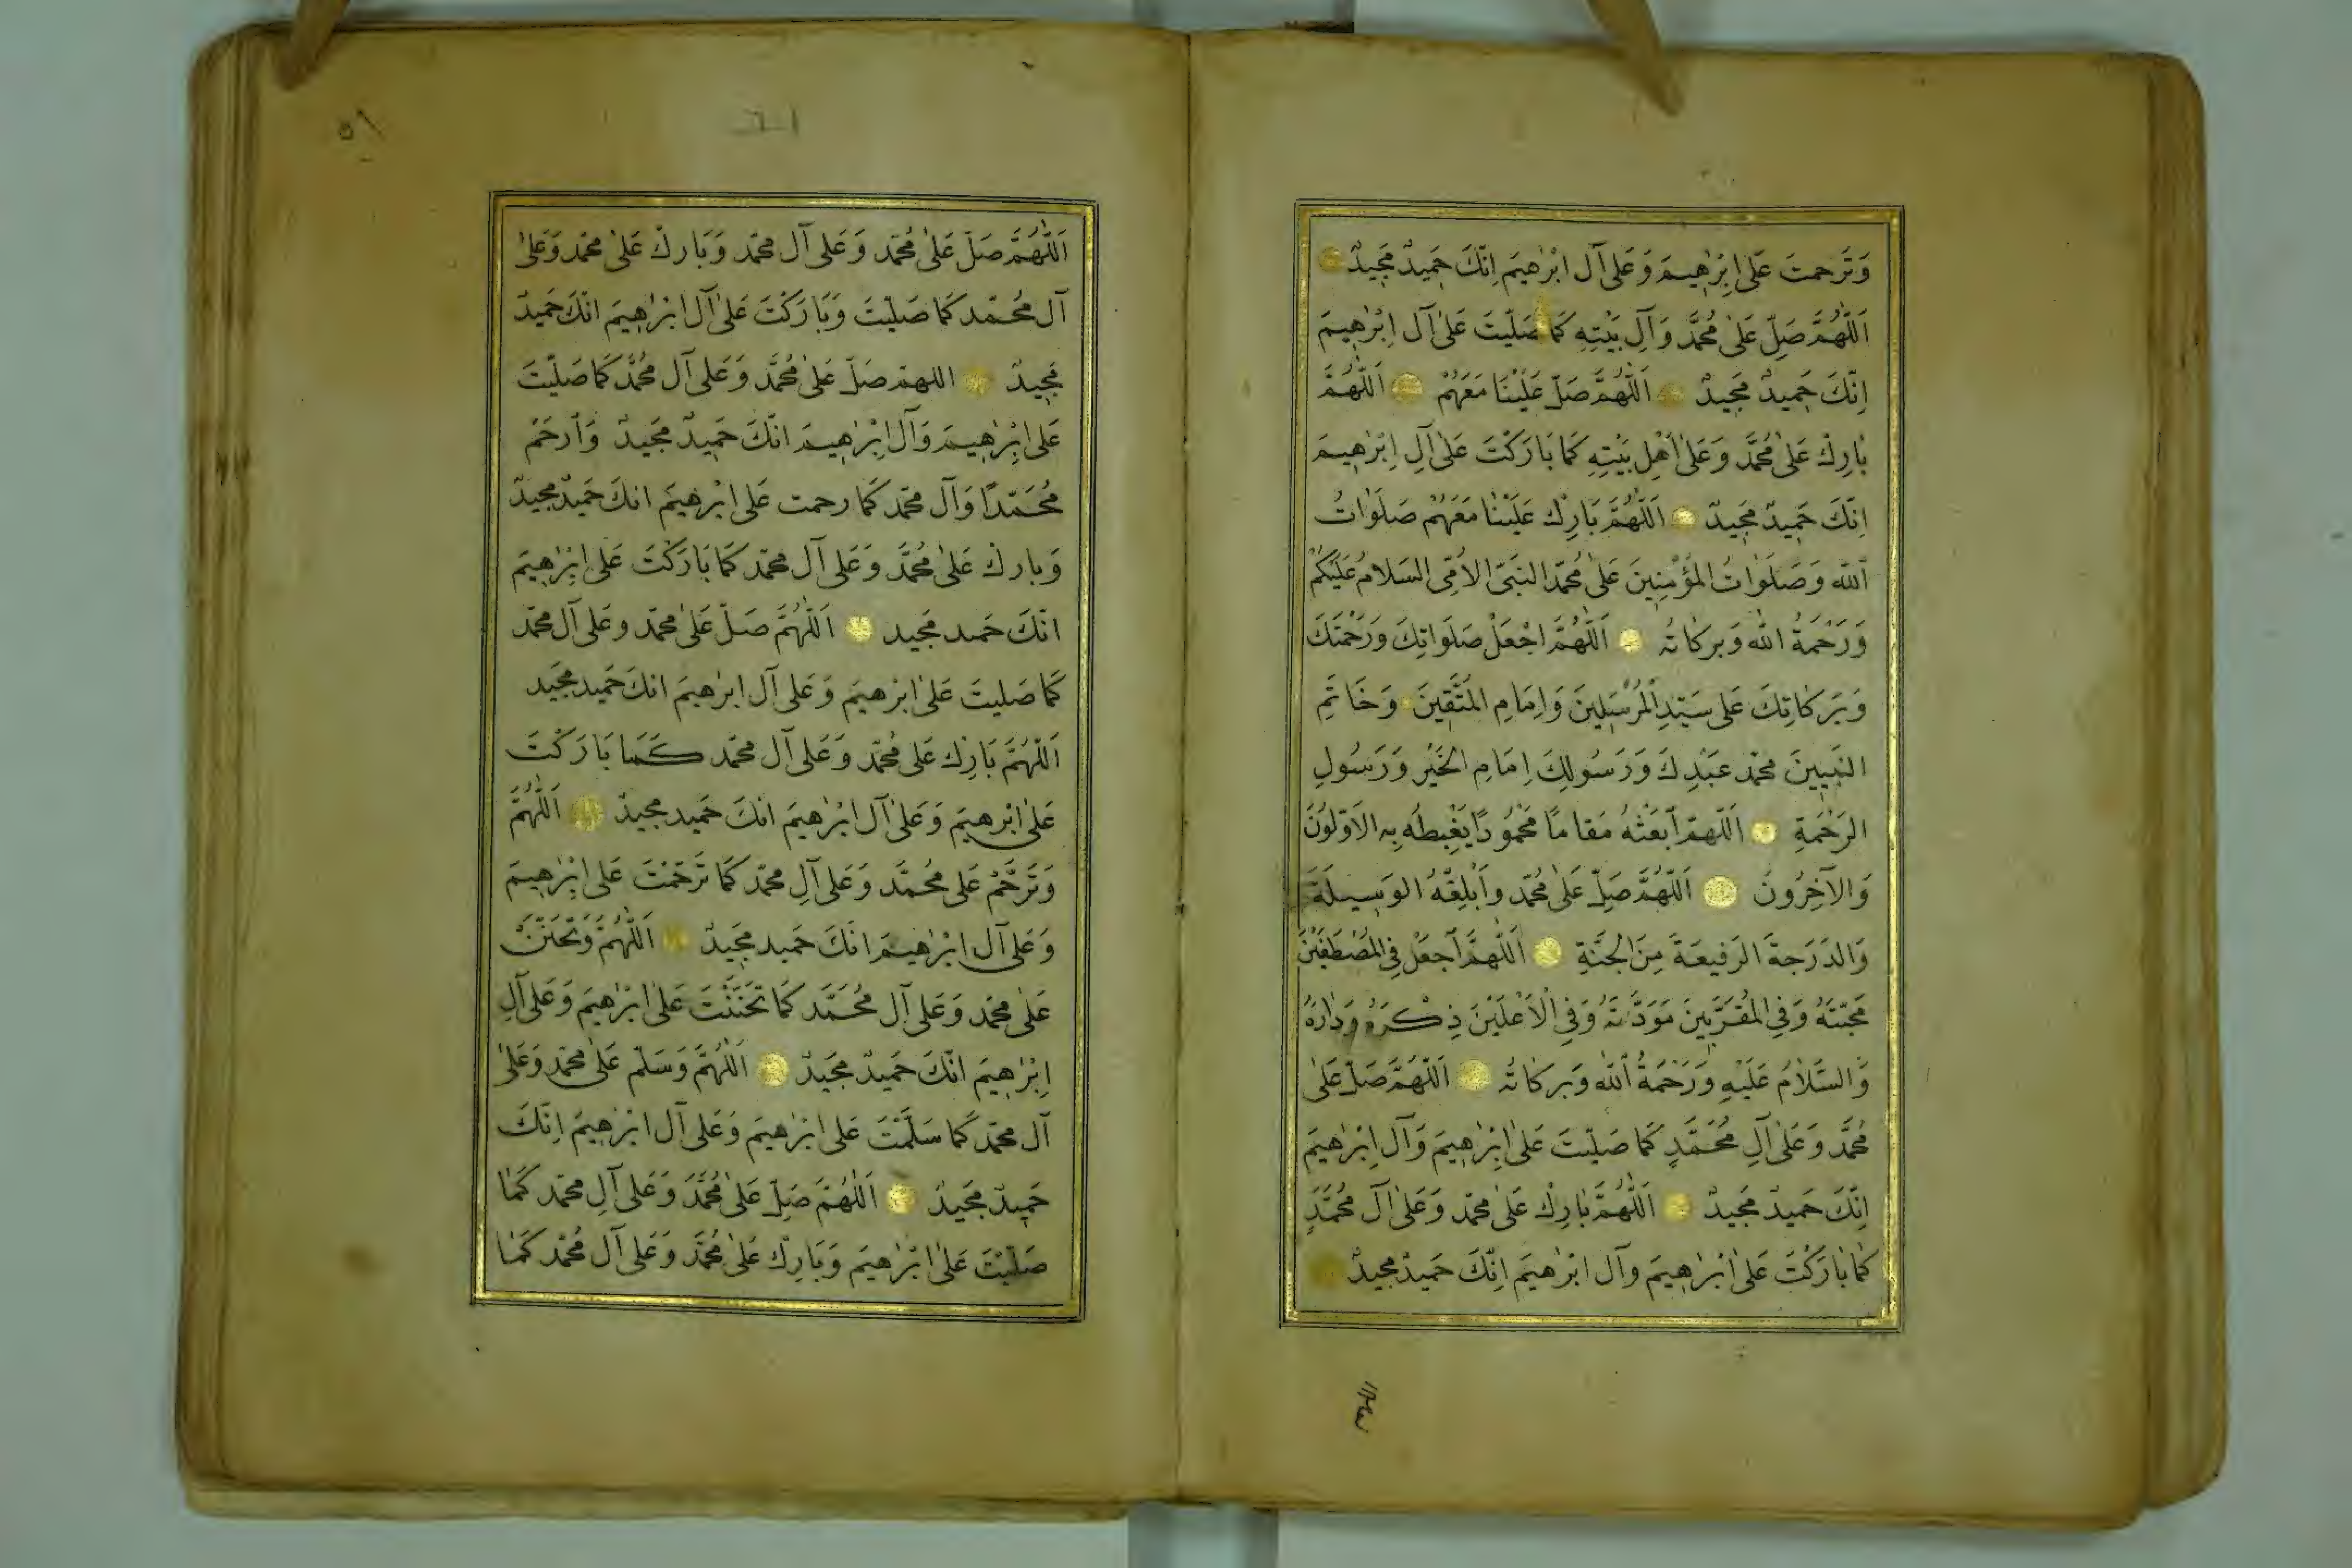 وَتَرَحمتَ عَلىٰ اِبْرٰهِيمَ وَعَلىٰ آل ابْرٰهيمَ اِنَّكَ حَمِيدٌ مَجِيدٌ
اَللّٰهُمَّ صَلِّ عَلىٰ مُحَمَّد وَآلِ بَيْتِهِ كَمَا صَلَّيتَ عَلىٰ آل اِبْرٰهِيمَ
اِنَّكَ حَمِيدٌ مَجِيدٌ اَللّٰهُمَّ صَلِّ عَلَيْنَا مَعَهُمْ اَللّٰهُمَّ
بَارِكْ عَلىٰ مُحَمَّد وَعَلىٰ اَهْلِ بَيْتِهِ كَمَا بَارَكْتَ عَلىٰ آلِ اِبْرٰهِيمَ
اِنَّكَ حَمِيدٌ مَجِيدٌ اَللّٰهُمَّ بَارِكْ عَلَيْنَا مَعَهُمْ صَلَوَاتُ
اَللّٰه وَصَلَوَاتُ المُؤْمِنِينَ عَلىٰ مُحَمَّد النَبِىّ الاُمِّى السَلامُ عَلَيْكُمْ
وَرَحْمَةُ اللّٰه وَبَركَاتُه اَللّٰهُمَّ اجْعَلْ صَلَوَاتِكَ وَرَحْمَتَكَ
وَبَرَكَاتِكَ عَلىٰ سَيِّدِ الْمُرْسَلِينَ وَاِمَامِ المُتَّقِينَ وَخَاتَمِ
النَبِيينَ مُحَمَّد عَبْدِكَ وَرَسُولِكَ اِمَامِ الخَيْرِ وَرَسُولِ
الرَحْمَةِ اَللّٰهُمَّ اَبْعَثْهُ مَقَامًا مَحْمُودًا يَغْبِطُه بِه الاَوَّلوُنَ
وَالآخِرُونَ اَللّٰهُمَّ صَلِّ عَلىٰ مُحَمَّد وَاَبْلِغْهُ الوَسِيلَةَ
وَالدَرَجَةَ الرَفِيعَةَ مِنَ الجَنَّةِ اَللّٰهُمَّ اَجعَلْ فِى المُصْطَفَيْنَ
مَحَبَّتَهُ وَفِى المُقَرَّبِينَ مَوَدَّتَهُ وَفِى الْاَعْلَيْنَ ذِكْرَهُ وَدَارَهُ
وَالسَّلَامُ عَلَيْهِ وَرَحْمَةُ اَللّٰه وَبَركَاتُه اَللّٰهُمَّ صَلِّ عَلىٰ
مُحَمَّد وَعَلىٰ آلِ مُحَمَّدٍ كَمَا صَلَّيْتَ عَلىٰ اِبْرٰهِيمَ وَآلِ اِبْرٰهِيمَ
اِنَّكَ حَمِيدٌ مَجِيدٌ اَللّٰهُمَّ بَارِكْ عَلىٰ مُحَمَّد وَعَلىٰ آلِ مُحَمَّدٍ
كَمَا بَارَكْتَ عَلىٰ اِبْرٰهِيمَ وآل ابْرٰهيمَ اِنَّكَ حَمِيدٌ مَجِيدٌ
٥٩
اَللّٰهُمَّ صَلِّ عَلىٰ مُحَمَّد وَعَلىٰ آل مُحَمَّد وَبَارِكْ عَلىٰ مُحَمَّد وَعَلىٰ
آل مُحَمَّد كَمَا صَلَّيْتَ وَبَارَكْتَ عَلىٰ آل ابْرٰهِيمَ انَّكَ حَمِيدٌ
مَجِيدٌ اللهمّ صَلِّ عَلىٰ مُحَمَّد وَعَلىٰ آل مُحَمَّد كَمَا صَلَّيْتَ
عَلىٰ اِبْرٰهِيمَ وَآلِ اِبْرٰهِيمَ انَّكَ حَمِيدٌ مَجِيدٌ وَاَرحَمْ
مُحَمَّدًا وَآلَ مُحَمَّد كَمَا رحمت عَلىٰ ابْرٰهِيمَ انكَ حَمِيدٌ مجيدٌ
وَبارِكْ عَلىٰ مُحَمَّد وَعَلىٰ آل مُحَمَّد كَمَا بَارَكْتَ عَلىٰ اِبْرٰهِيمَ
انَّكَ حَميد مَجِيد اَللّٰهُمَّ صَلِّ عَلىٰ مُحَمَّد وعَلىٰ آل مُحَمَّد
كَمَا صَلَيتَ عَلىٰ ابرٰهيمَ وَعَلىٰ آل ابرٰهيمَ انكَ حَمِيد مَجِيد
اَللّٰهُمَّ بَارِك عَلىٰ مُحَمَّد وَعَلىٰ آل مُحَمَّد كَمَا بَارَكْتَ
عَلىٰ ابْرٰهِيمَ وَعَلىٰ آل ابْرٰهيمَ انكَ حَمِيد مجيدٌ اَللّٰهُمَّ
وَتَرَحَّمْ عَلىٰ مُحَمَّد وَعَلىٰ آلِ مُحَمَّد كَمَا تَرَحَّمْتَ عَلىٰ اِبْرٰهِيمَ
وَعَلىٰ آل ابْرٰهِيمَ انَّكَ حَمِيد مَجِيدٌ اَللّٰهُمَّ وَتَحَنَّنْ
عَلىٰ مُحَمَّد وَعَلىٰ آل مُحَمَّد كَمَا تَحَنَّنْتَ عَلىٰ ابْرٰهِيمَ وَعَلىٰ آلِ
اِبْرٰهِيمَ انَّكَ حَمِيدٌ مَجِيدٌ اَللّٰهُمَّ وَسَلِّم عَلىٰ مُحَمَّد وَعَلىٰ
آل مُحَمَّد كَمَا سَلَّمْتَ عَلىٰ ابْرٰهيمَ وَعَلىٰ آل ابْرٰهِيمَ اِنَّكَ
حَمِيدٌ مَجِيدٌ اَللّٰهُمَّ صَلِّ عَلىٰ مُحَمَّد وَعَلىٰ آلِ مُحَمَّد كَمَا
صَلَّيْتَ عَلىٰ ابْرٰهيمَ وَبَارِك عَلىٰ مُحَمَّد وَعَلىٰ آل مُحَمَّد كَمَا